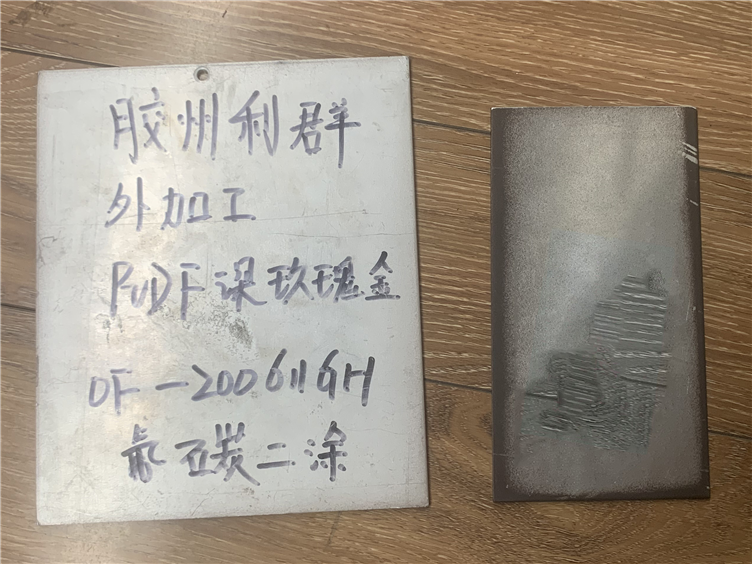 胶州利群
外加工
PVDF深玫瑰金
OF-2006116H
氟碳二涂